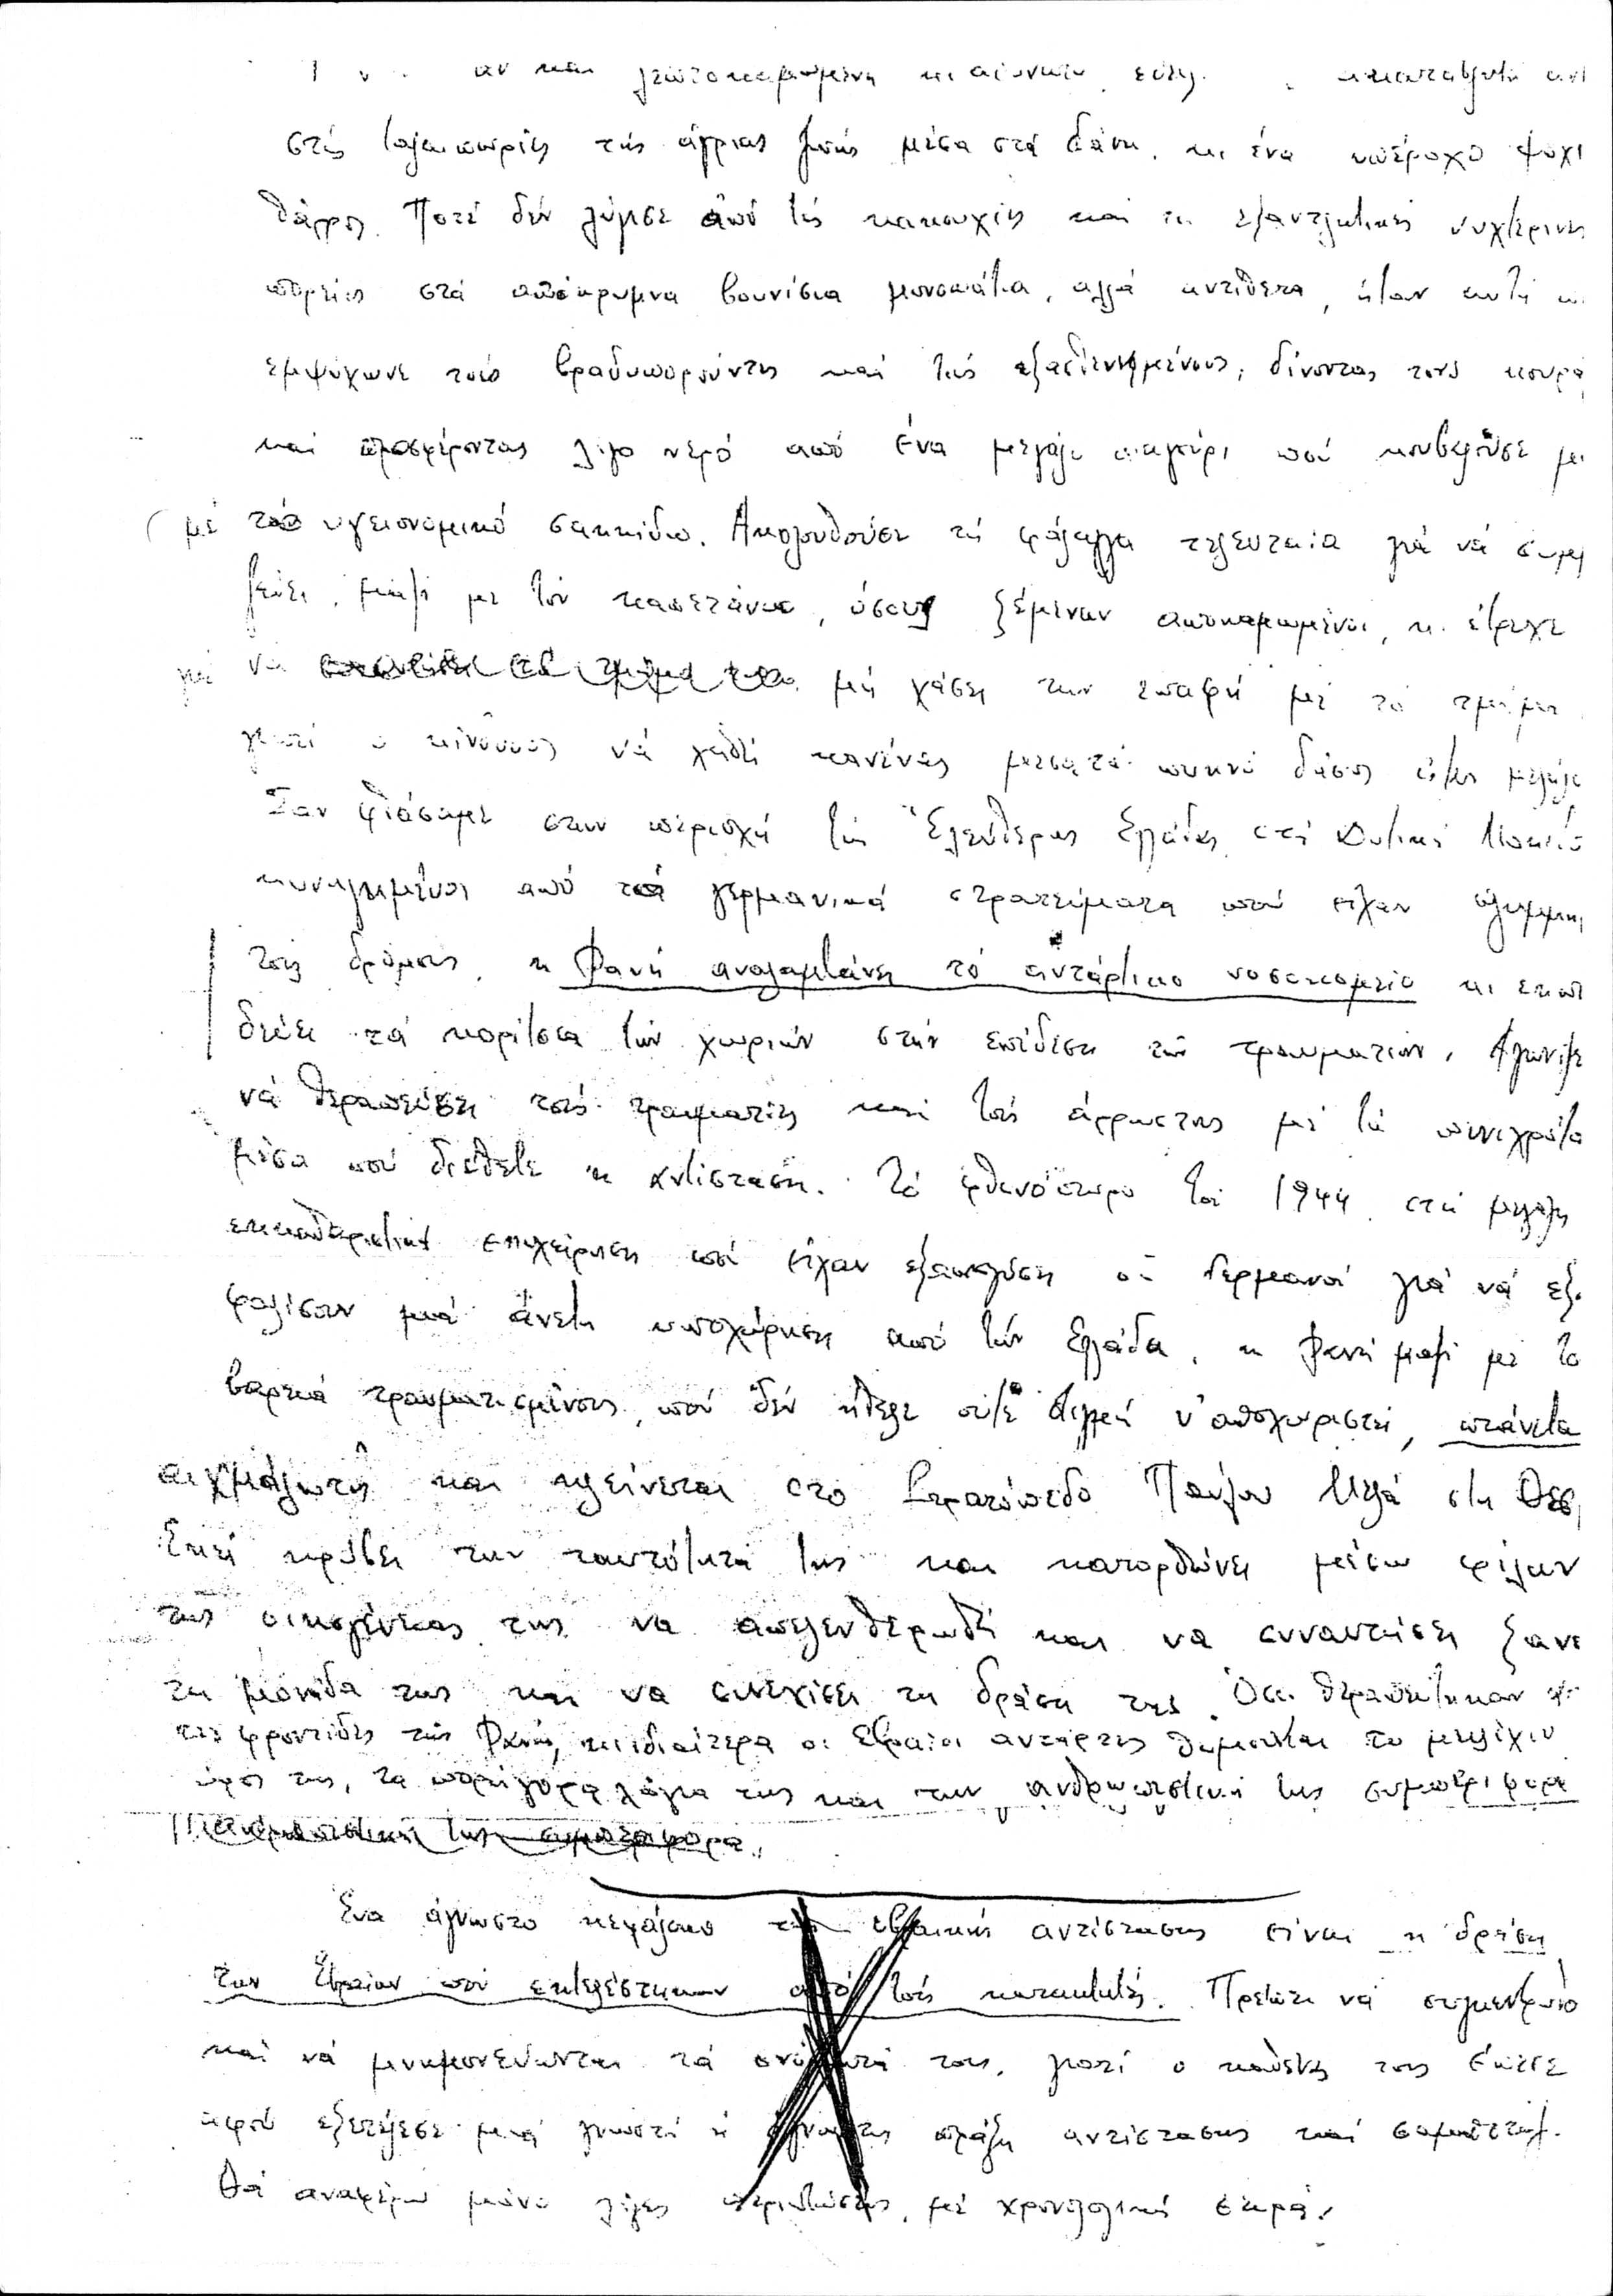 στίς ταλαιπωρίες τής άγριας ζωής μέσα στά δάση, κι ένα υπέροχο ψυχι
θάρρος. Ποτέ δέν λύγισε από τίς κακουχίες και τις εξαντλητικές νυχτερινές
πορείες στά απόκρυμνα βουνίσια μονοπάτια, αλλά αντίθετα, ήταν αυτή
εμψύχωνε τούς βραδυπορούντες καί τούς εξασθενημένους, δίνοντας τους κουρά
καί προσφέροντας λίγο νερό από ένα μεγάλο παγούρι πού κουβαλούσε μα
με τό υγειονομικό σακκίδιο. Ακολουθούσε τή φάλαγγα τελευταία γιά νά συμμ
μαζί με τόν καπετάνιο, όσους ξέμειναν αποκαμωμένοι, κι έτρεχε
νά μή χάση την επαφή μέ τό τμήμα
γιατί ο κίνδυνος νά χαθή κανένας μεσα στό πυκνό δάσος ήταν μεγάλο
Σαν φτάσαμε στην περιοχή τής Ελεύθερης Ελλάδας στή Δυτική Μακεδο
κυνηγημένοι από τά γερμανικά στρατεύματα πού είχαν
τούς δρόμους, η Φανή αναλαμβάνει τό αντάρτικο νοσοκομείο κι εκπαι
δεύει τά κορίτσια τών χωριών στήν επίδεση τών τραυματιών. Αγωνίζε
νά θεραπεύση τούς τραυματίες καί τούς άρρωστους μέ τά πενιχρότα
μέσα πού διέθετε η αντίσταση. Τό φθινόπωρο τού 1944 στή μεγάλη
εκκαθαριστική επιχείρηση πού είχαν εξαπολύση οι Γερμανοί γιά νά εξα
φαλίσουν μιά άνετη υποχώρηση από τήν Ελλάδα, η Φανή μαζί με το
βαρειά τραυματισμένους, πού δέν ήθελε ούτε στιγμή ν'αποχωριστεί, πιάνεται
αιχμάλωτη και κλείνεται στο Στρατόπεδο Παύλου Μελά στη Θεσ
Εκεί κρύβει την ταυτότητά της και κατορθώνει μέσω φίλων
της οικογένειας της να απελευθερωθή και να συναντήσει ξανα
τη μονάδα της και να συνεχίσει τη δράση της. Όσοι θεραπεύτηκαν απ
τις φροντίδες τής Φανής, κι ιδιαίτερα οι Εβραίοι αντάρτες θυμούνται το μειλίχιο
ύφος της, τα παρήγορα λόγια της και την ανθρωπιστική της συμπεριφορα
ανθρωπιστική της συμπεριφορα.
Ένα άγνωστο κεφάλαιο της εβραικής αντίστασης είναι η δράση
των Εβραίων που εκτελέστηκαν από τούς κατακτητές. Πρέπει νά συγκεντρωθο
καί νά μνημονεύωνται τά ονόματά τους, γιατί ο καθένας τους έπεσε
αφού εξετέλεσε μιά γνωστή ή άγνωστη πράξη αντίστασης καί σαμποτάζ.
Θά αναφέρω μόνο λίγες περιπτώσεις, μέ χρονολογική σειρά.